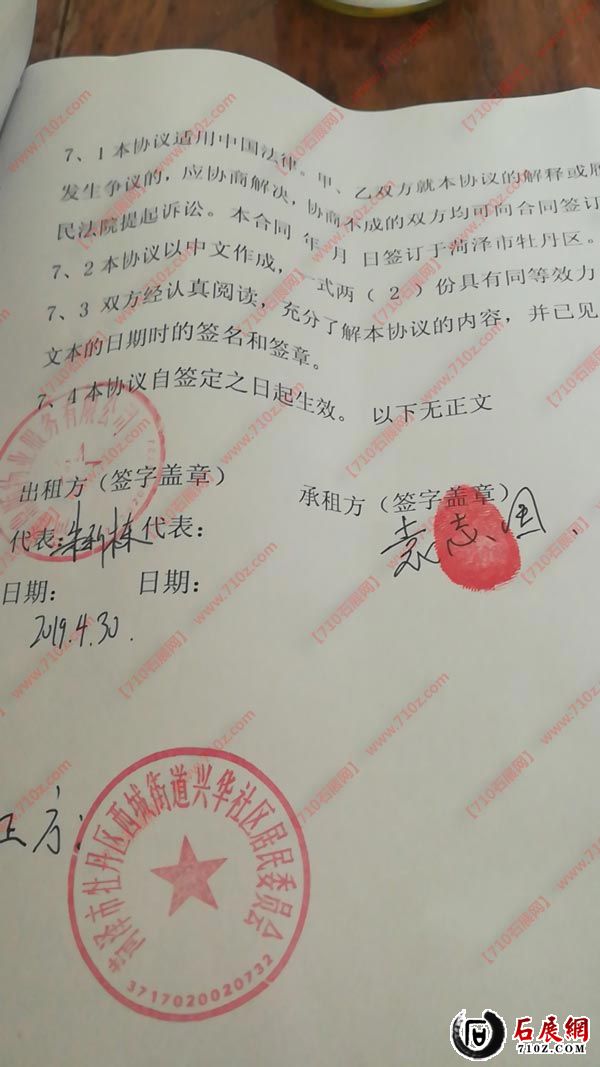 7、1本协议适用中国法律。甲、乙双方就本协议的解释或履
发生争议的，应协商解决，协商不成的双方均可向合同签订
民法院提起诉讼。本合同 年 月 日签订于菏泽市牡丹区。
7、2本协议以中文作成，一式两（2）份具有同等效力
7、3 双方经认真阅读，充分了解本协议的内容，并已见
文本的日期时的签名和签章。
7、4本协议自签定之日起生效。 以下无正文
业服务有限公司
出租方（签字盖章）
承租方（签字盖章）
代表： 代表：
袁志国
日期： 日期：
2019.4.30.
方：
菏泽市牡丹区西城街道兴华社区居民委员会
3717020020732
【710石展网】 www.710z.com
石展網
710Z.COM